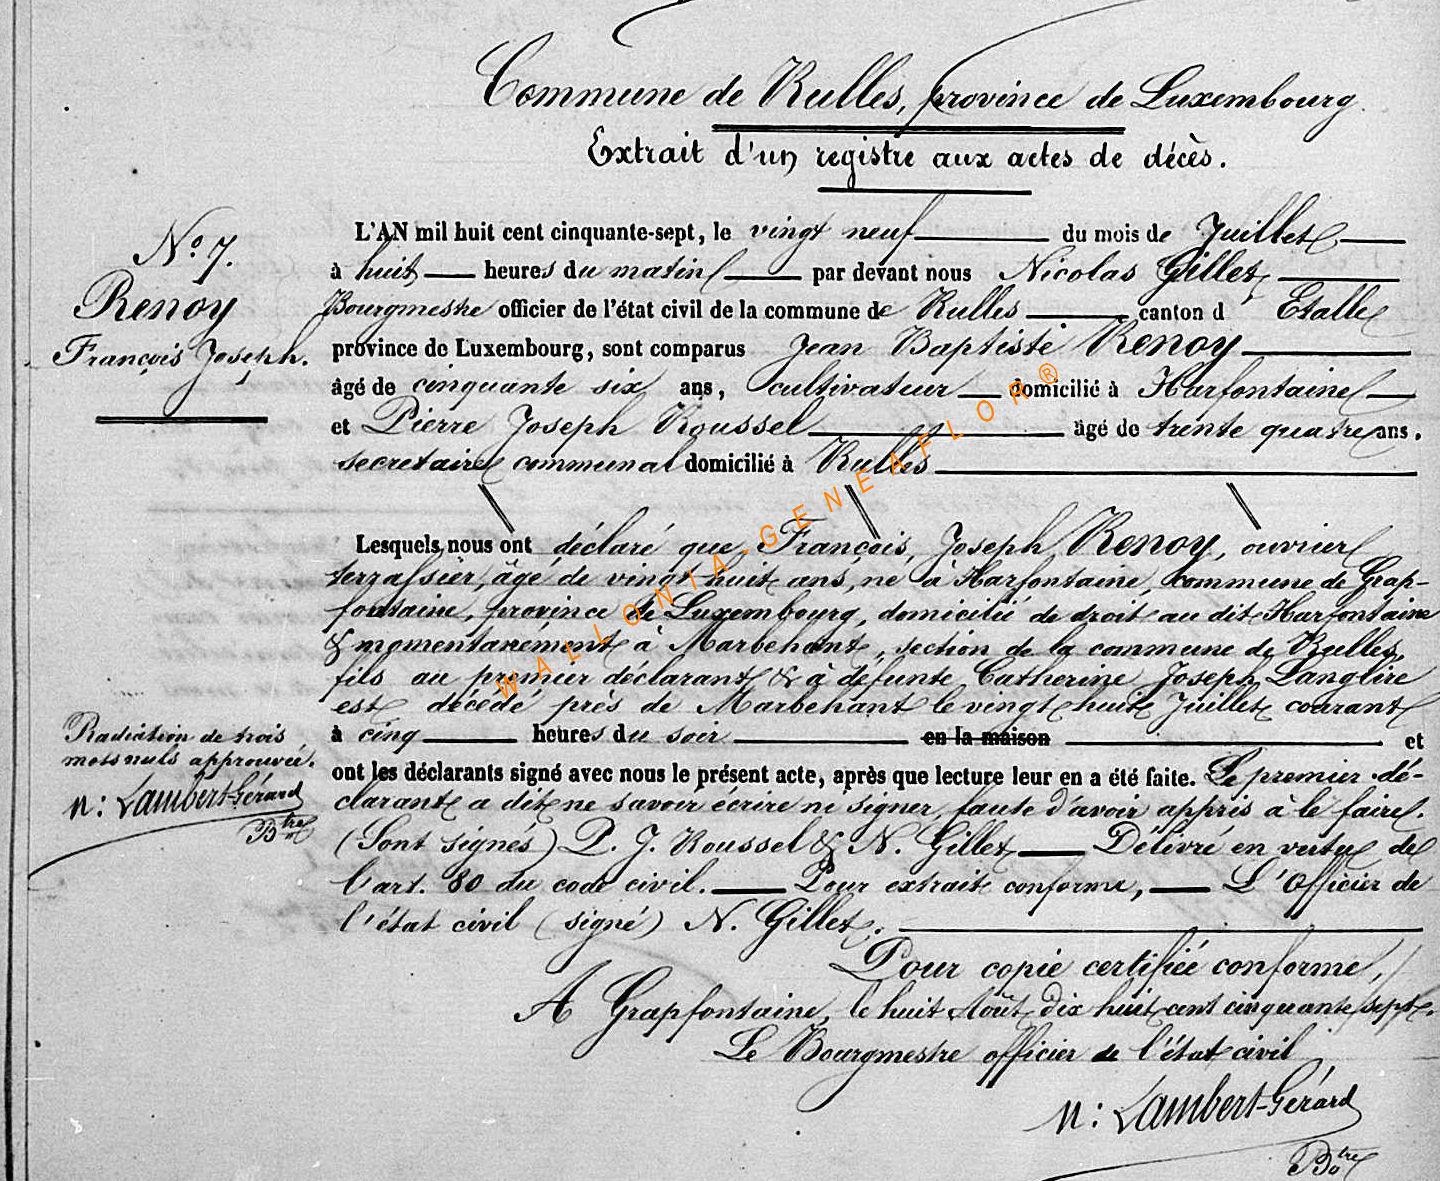 Commune de Rulles, province de Luxembourg.
Extrait d'un registre aux actes de décès.
N.o 7.
Renoy
François Joseph.
L'AN mil huit cent cinquante-sept, le vingt neuf du mois de Juillet
à huit heures du matin par devant nous Nicolas Gillet
Bourgmestre officier de l'état civil de la commune de Rulles canton d Etalle
province de Luxembourg, sont comparus Jean Baptiste Renoy
âgé de cinquante six ans, cultivateur domicilié à Harfontaine
et Pierre Joseph Roussel âgé de trente quatre ans,
secretaire communal domicilié à Rulles
Lesquels nous ont déclaré que François, Joseph, Renoy, ouvrier
terrassier, âgé de vingt huit ans, né à Harfontaine, commune de Grap-
fontaine, province de Luxembourg, domicilié de droit au dit Harfontaine
& momentanément à Marbehant, section de la commune de Rulles,
fils au premier déclarant & à défunte Catherine Joseph Langlire
est décédé près de Marbehant le vingt huit Juillet courant
à cinq heures du soir en la maison et
ont les déclarants signé avec nous le présent acte, après que lecture leur en a été faite. Le premier dé-
clarant a dit ne savoir écrire ni signer, faute d'avoir appris à le faire.
(Sont signés) P. J. Roussel & N. Gillet Délivré en vertu de
l'art. 80 du code civil. Pour extrait conforme, L'Officier de
l'état civil (signé) N. Gillet.
Radiation de trois
mots nuls approuvée.
N: Lambert-Gérard
Btre
Pour copie certifiée conforme,
A Grapfontaine, le huit Août dix huit cent cinquante sept.
Le Bourgmestre officier de l'état civil
N: Lambert-Gérard
Btre
WALLONIA-GENEAFLOR®